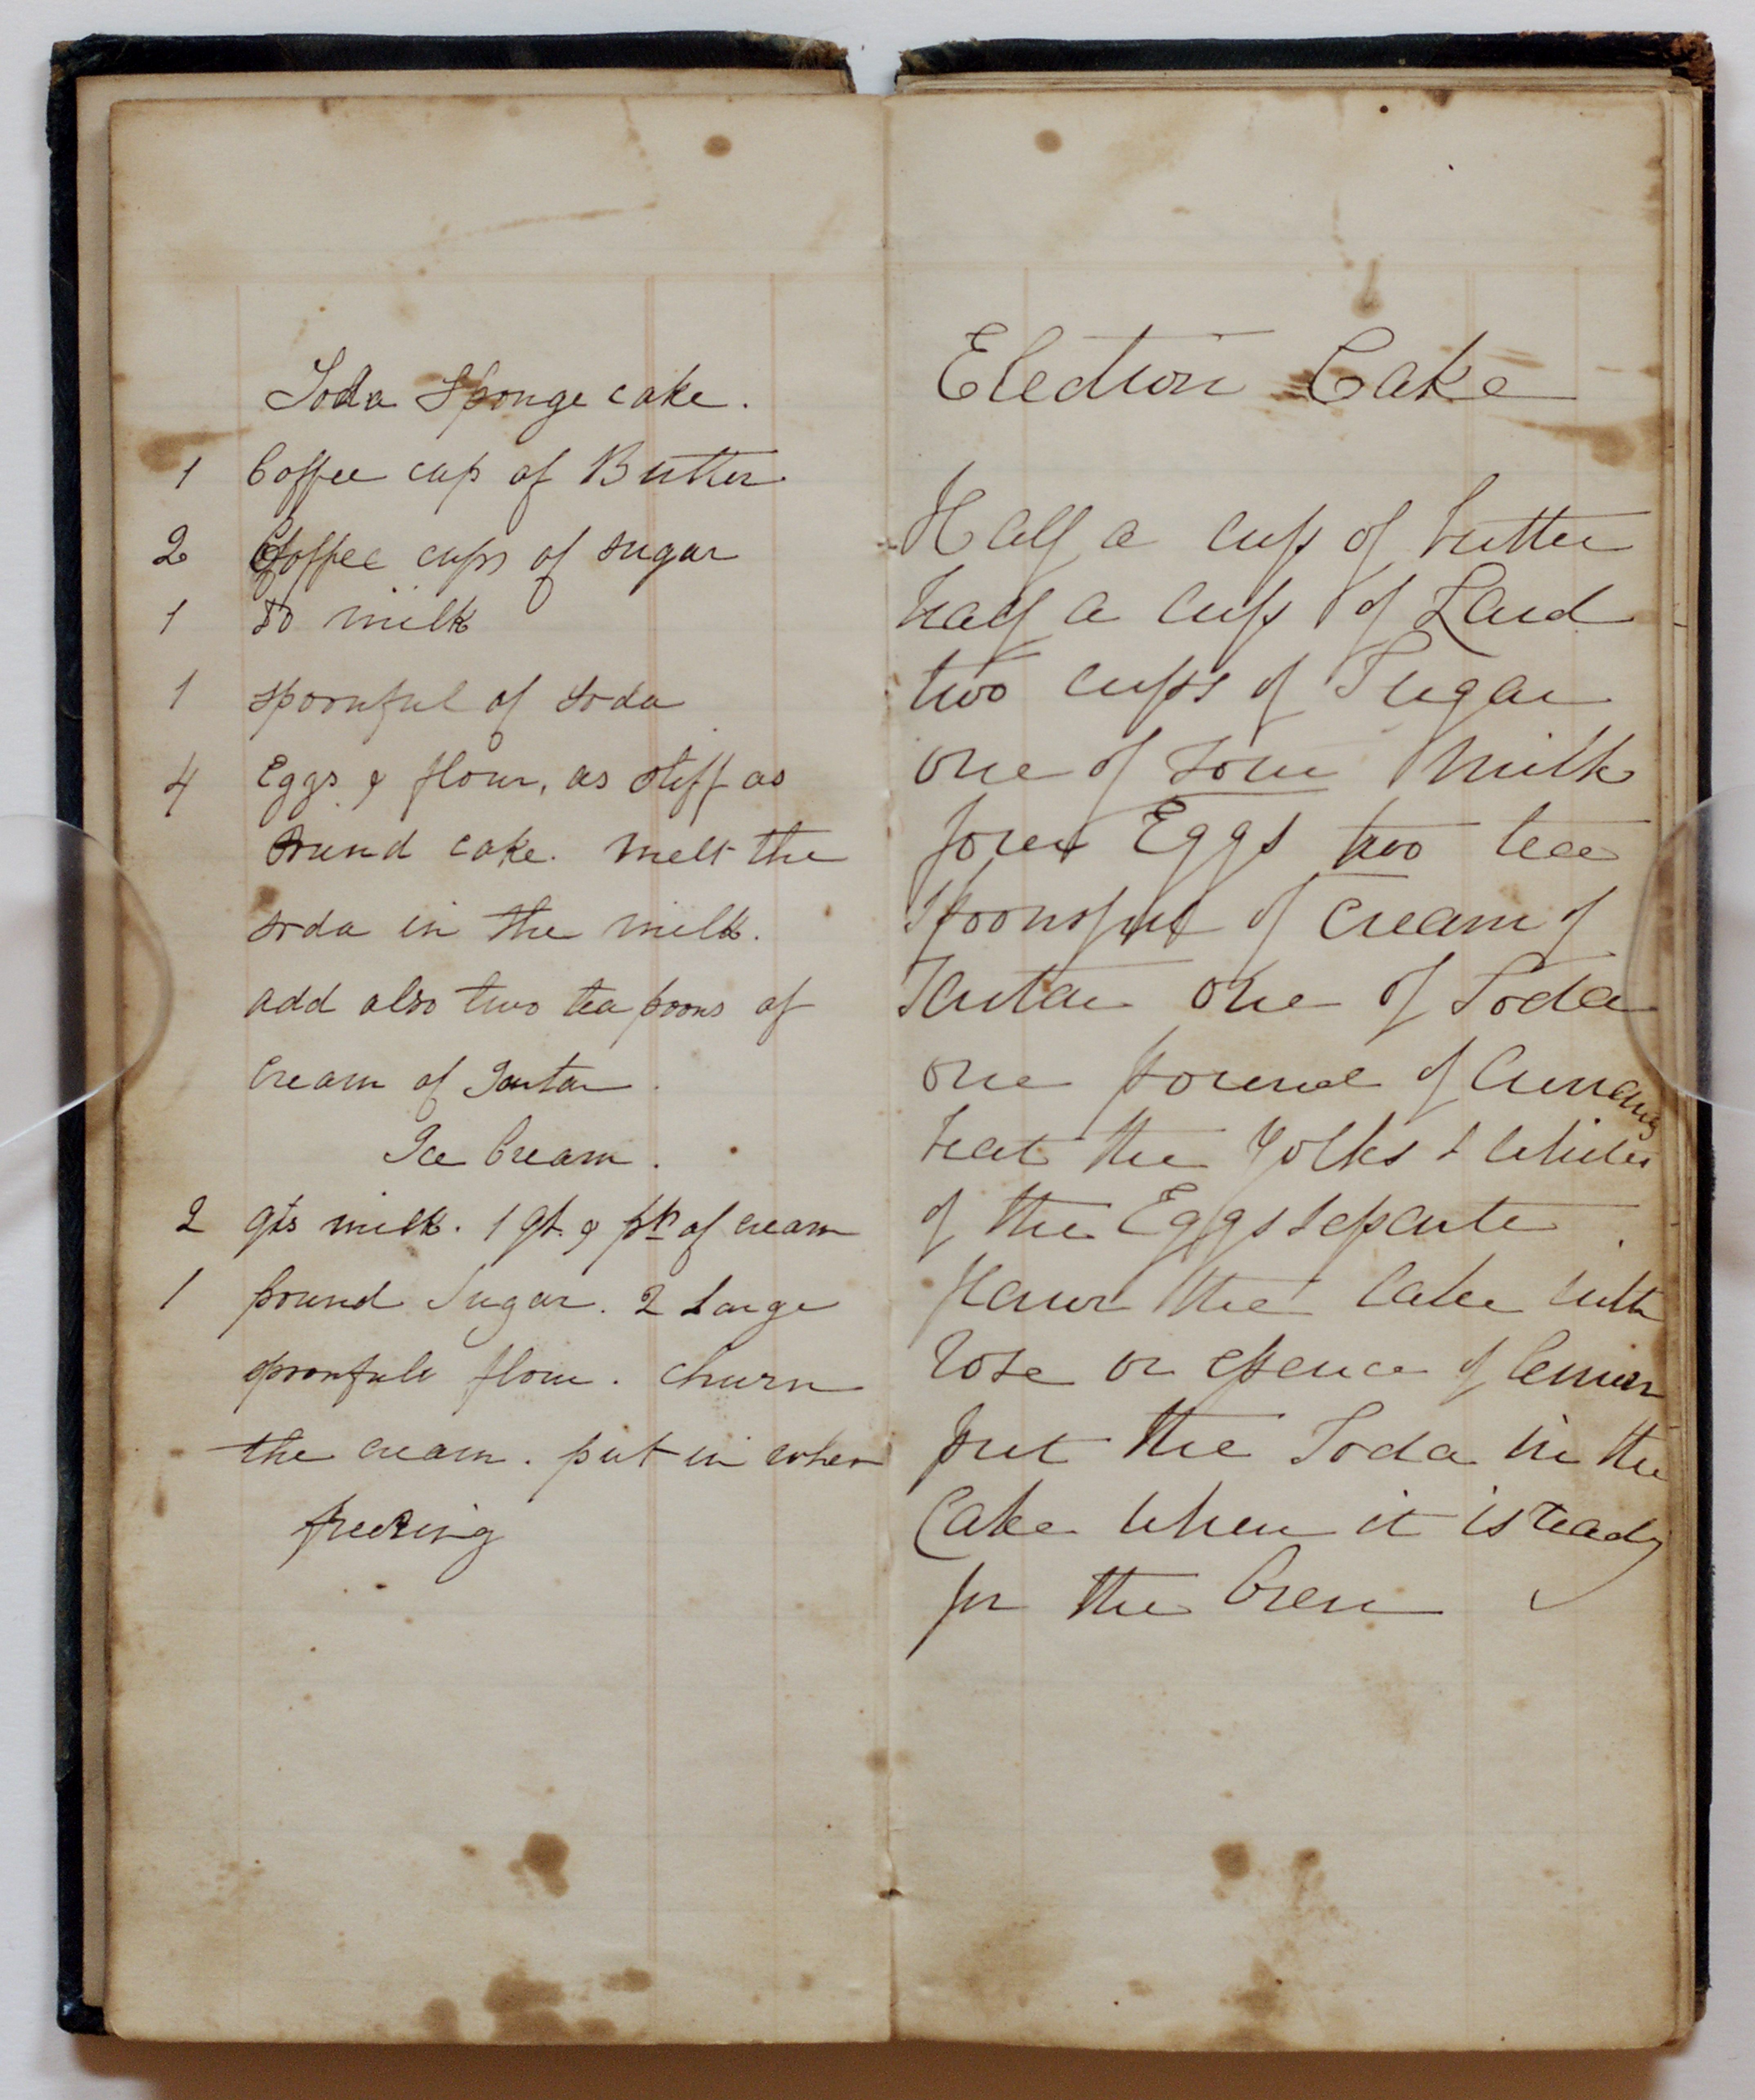 Soda Sponge cake.
1 Coffee cup of Butter
2 Coffee cups of sugar
1 Do milk
1 spoonful of soda
4 Eggs & flour, as stiff as
Pound cake. melt the
soda in the milk.
add also two teaspoons of
Cream of Tartar.
Ice Cream.
2 qts milk. 1 qt. & pt of cream
1 pound Sugar. 2 Large
spoonfuls flour. churn
the cream. put in when
freezing
Election Cake
Half a cup of butter
half a cup of Lard
two cups of Sugar
one of sour Milk
four Eggs two tea
spoonsful of Cream of
Tartar one of Soda
one pound of Currants
beat the Yolks & Whites
of the Eggs seperate
flavor the Cake with
rose or essence of lemon
put the Soda in the
Cake when it is ready
for the Oven